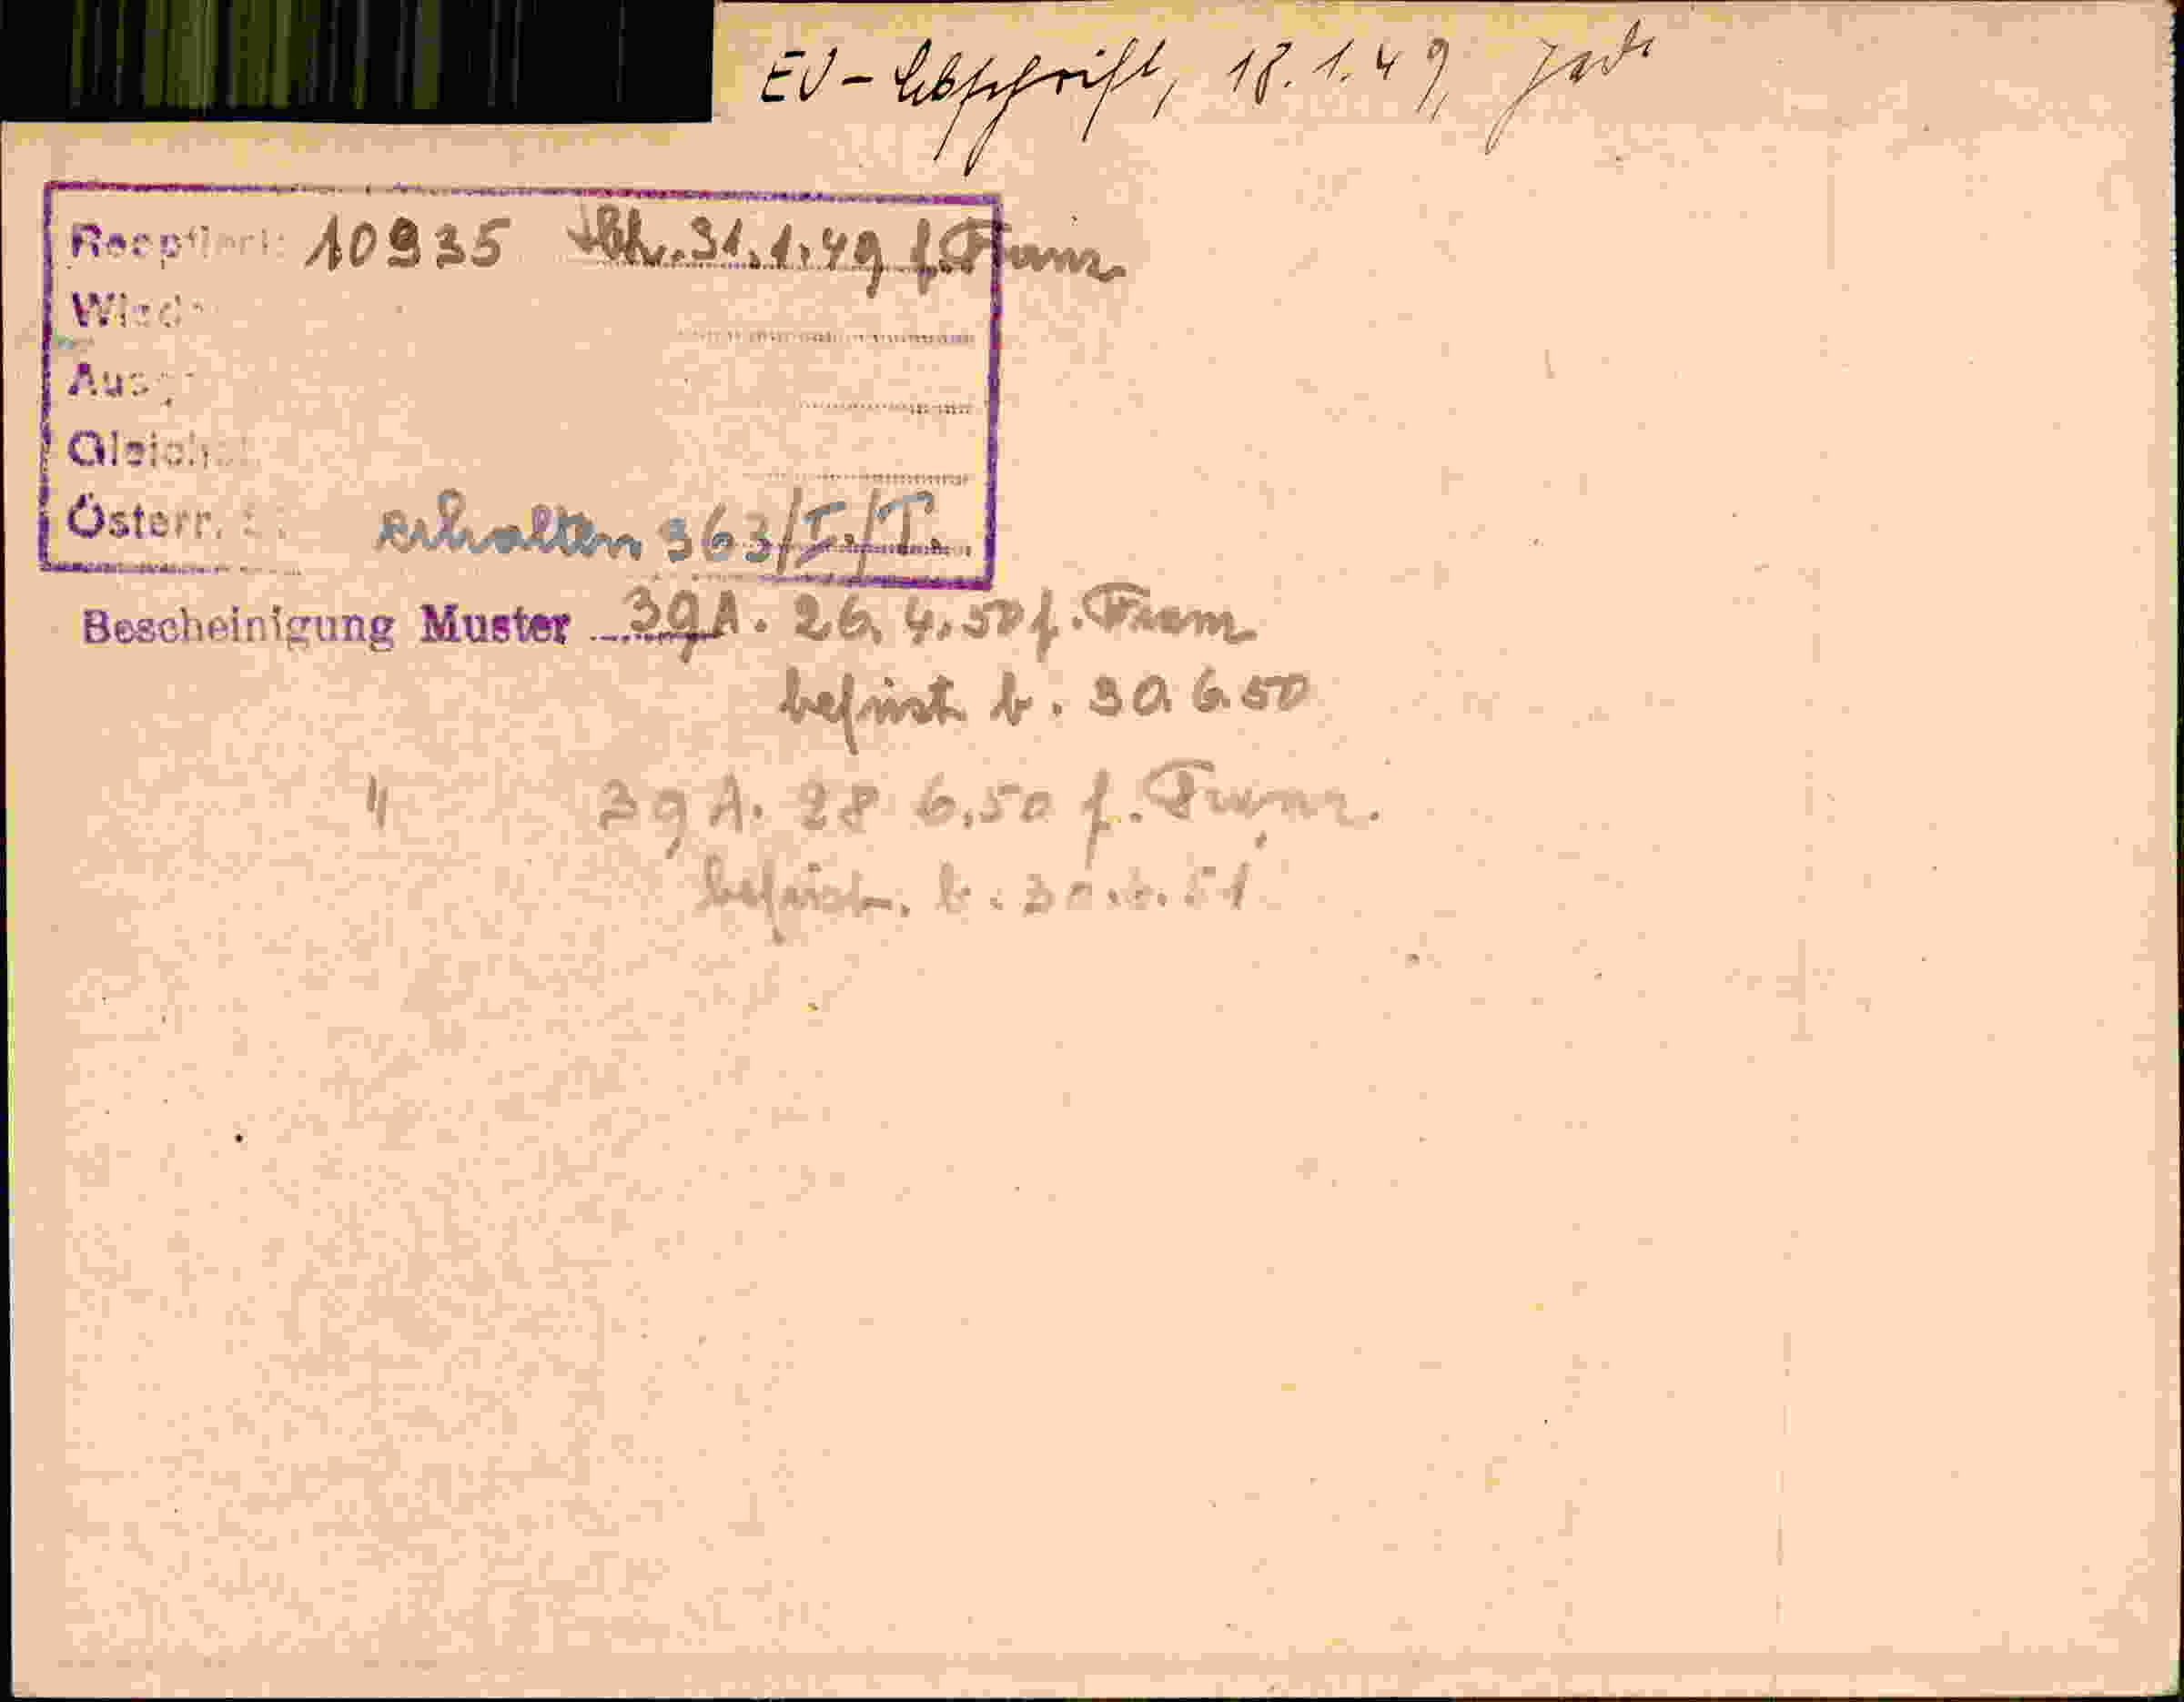 EV-Abschrift, 18.1.49,
Reeptiert: 10935 Abh. 31.1.49 f. Franz
Wied
Ausg
Gleichst
Österr. St erhalten 363/I./T.
Bescheinigung Muster 39A. 26.4.50 f. Franz
befrist. b. 30.6.50
" 39A. 28 6.50 f. Franz.
befrist. b. 30.6.51